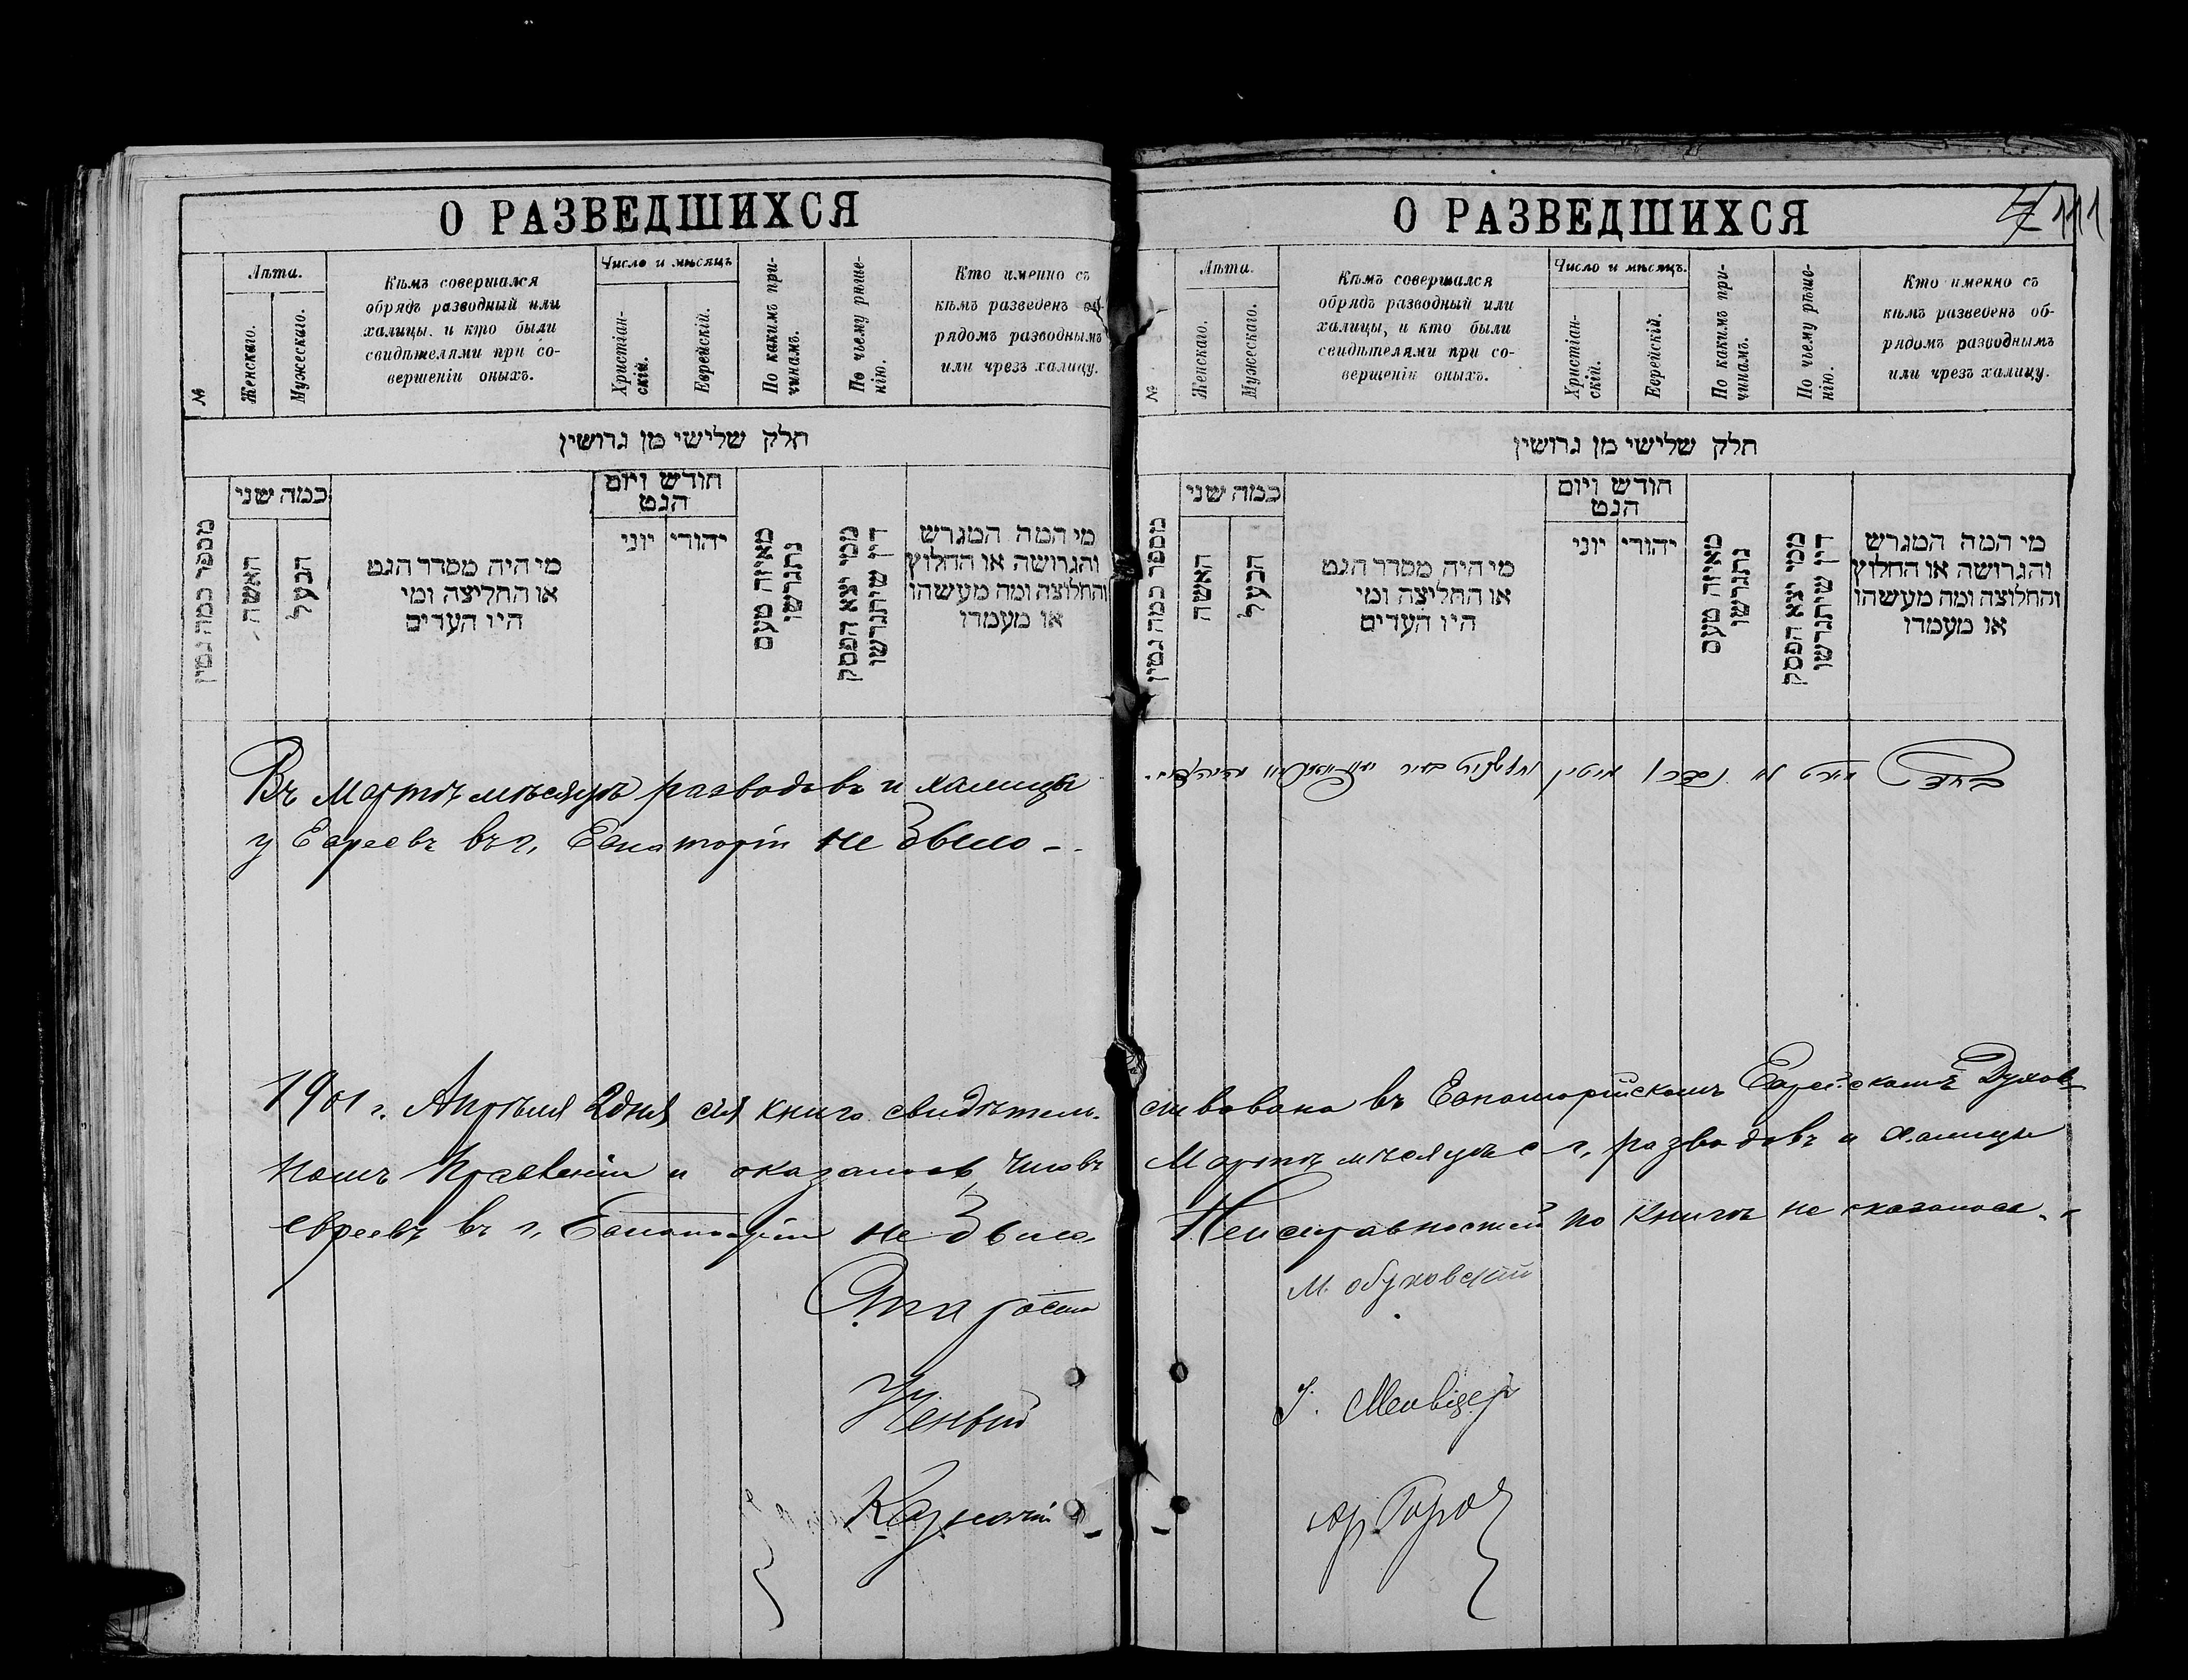 О РАЗВЕДШИХСЯ
№
Лѣта.
Женскаго.
Мужескаго.
Кѣмъ совершался
обрядъ разводный или
халицы. и кто были
свидѣтелями при со-
вершеніи оныхъ.
Число и мѣсяцъ
Христіан-
скій.
Еврейскій.
По какимъ при-
чинамъ.
По чьему рѣше-
нію.
Кто именно съ
кѣмъ разведенъ об-
рядомъ разводнымъ
или чрезъ халицу.
חלק שלישי מן גרושין
מספר כמה גטין
כמה שני
האשה
הבעל
מי היה מסדר הגט
או החליצה ומי
היו העדים
חודש ויום
הגט
יהודי
יוני
מאיזה טעם
נתגרשו
ממי יצא הפסק
דין שיתגרשו
מי המה המגרש
והגרושה או החלוץ
והחלוצה ומה מעשהו
או מעמדו
Въ Мартѣ мѣсяцѣ разводовъ и халицы
у Евреевъ въ г. Евпаторіи не было
1901 г. Апрѣля 2 дня сія книга свидѣтель-
номъ Правленіи и оказалось, что въ
евреевъ въ г. Евпаторіи не было
Староста
Ученый
Казначій
О РАЗВЕДШИХСЯ
111
№
Лѣта.
Женскаго.
Мужескаго.
Кѣмъ совершался
обрядъ разводный или
халицы, и кто были
свидѣтелями при со-
вершеніи оныхъ.
Число и мѣсяцъ.
Христіан-
скій.
Еврейскій.
По какимъ при-
чинамъ.
По чьему рѣше-
нію.
Кто именно съ
кѣмъ разведенъ об-
рядомъ разводнымъ
или чрезъ халицу.
חלק שלישי מן גרושין
מספר כמה גטין
כמה שני
האשה
הבעל
מי היה מסדר הגט
או החליצה ומי
היו העדים
חודש ויום
הגט
יהודי
יוני
מאיזה טעם
נתגרשו
ממי יצא הפסק
דין שיתגרשו
מי המה המגרש
והגרושה או החלוץ
והחלוצה ומה מעשהו
או מעמדו
ствована въ Евпаторійскомъ Еврейскомъ Духов-
Мартѣ мѣсяцѣ с г. разводовъ и халицы
Неисправностей по книгѣ не оказалось
М. Обуховскій